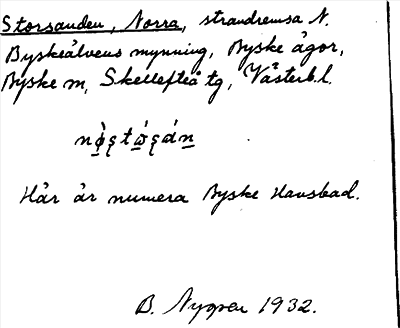 Storsanden, Norra, strandremsa N.
Byskeälvens mynning, Byske ägor,
Byske sn, Skellefteå tg, Västerb. l.
Här är numera Byske Havsbad.
B. Nygren 1932.